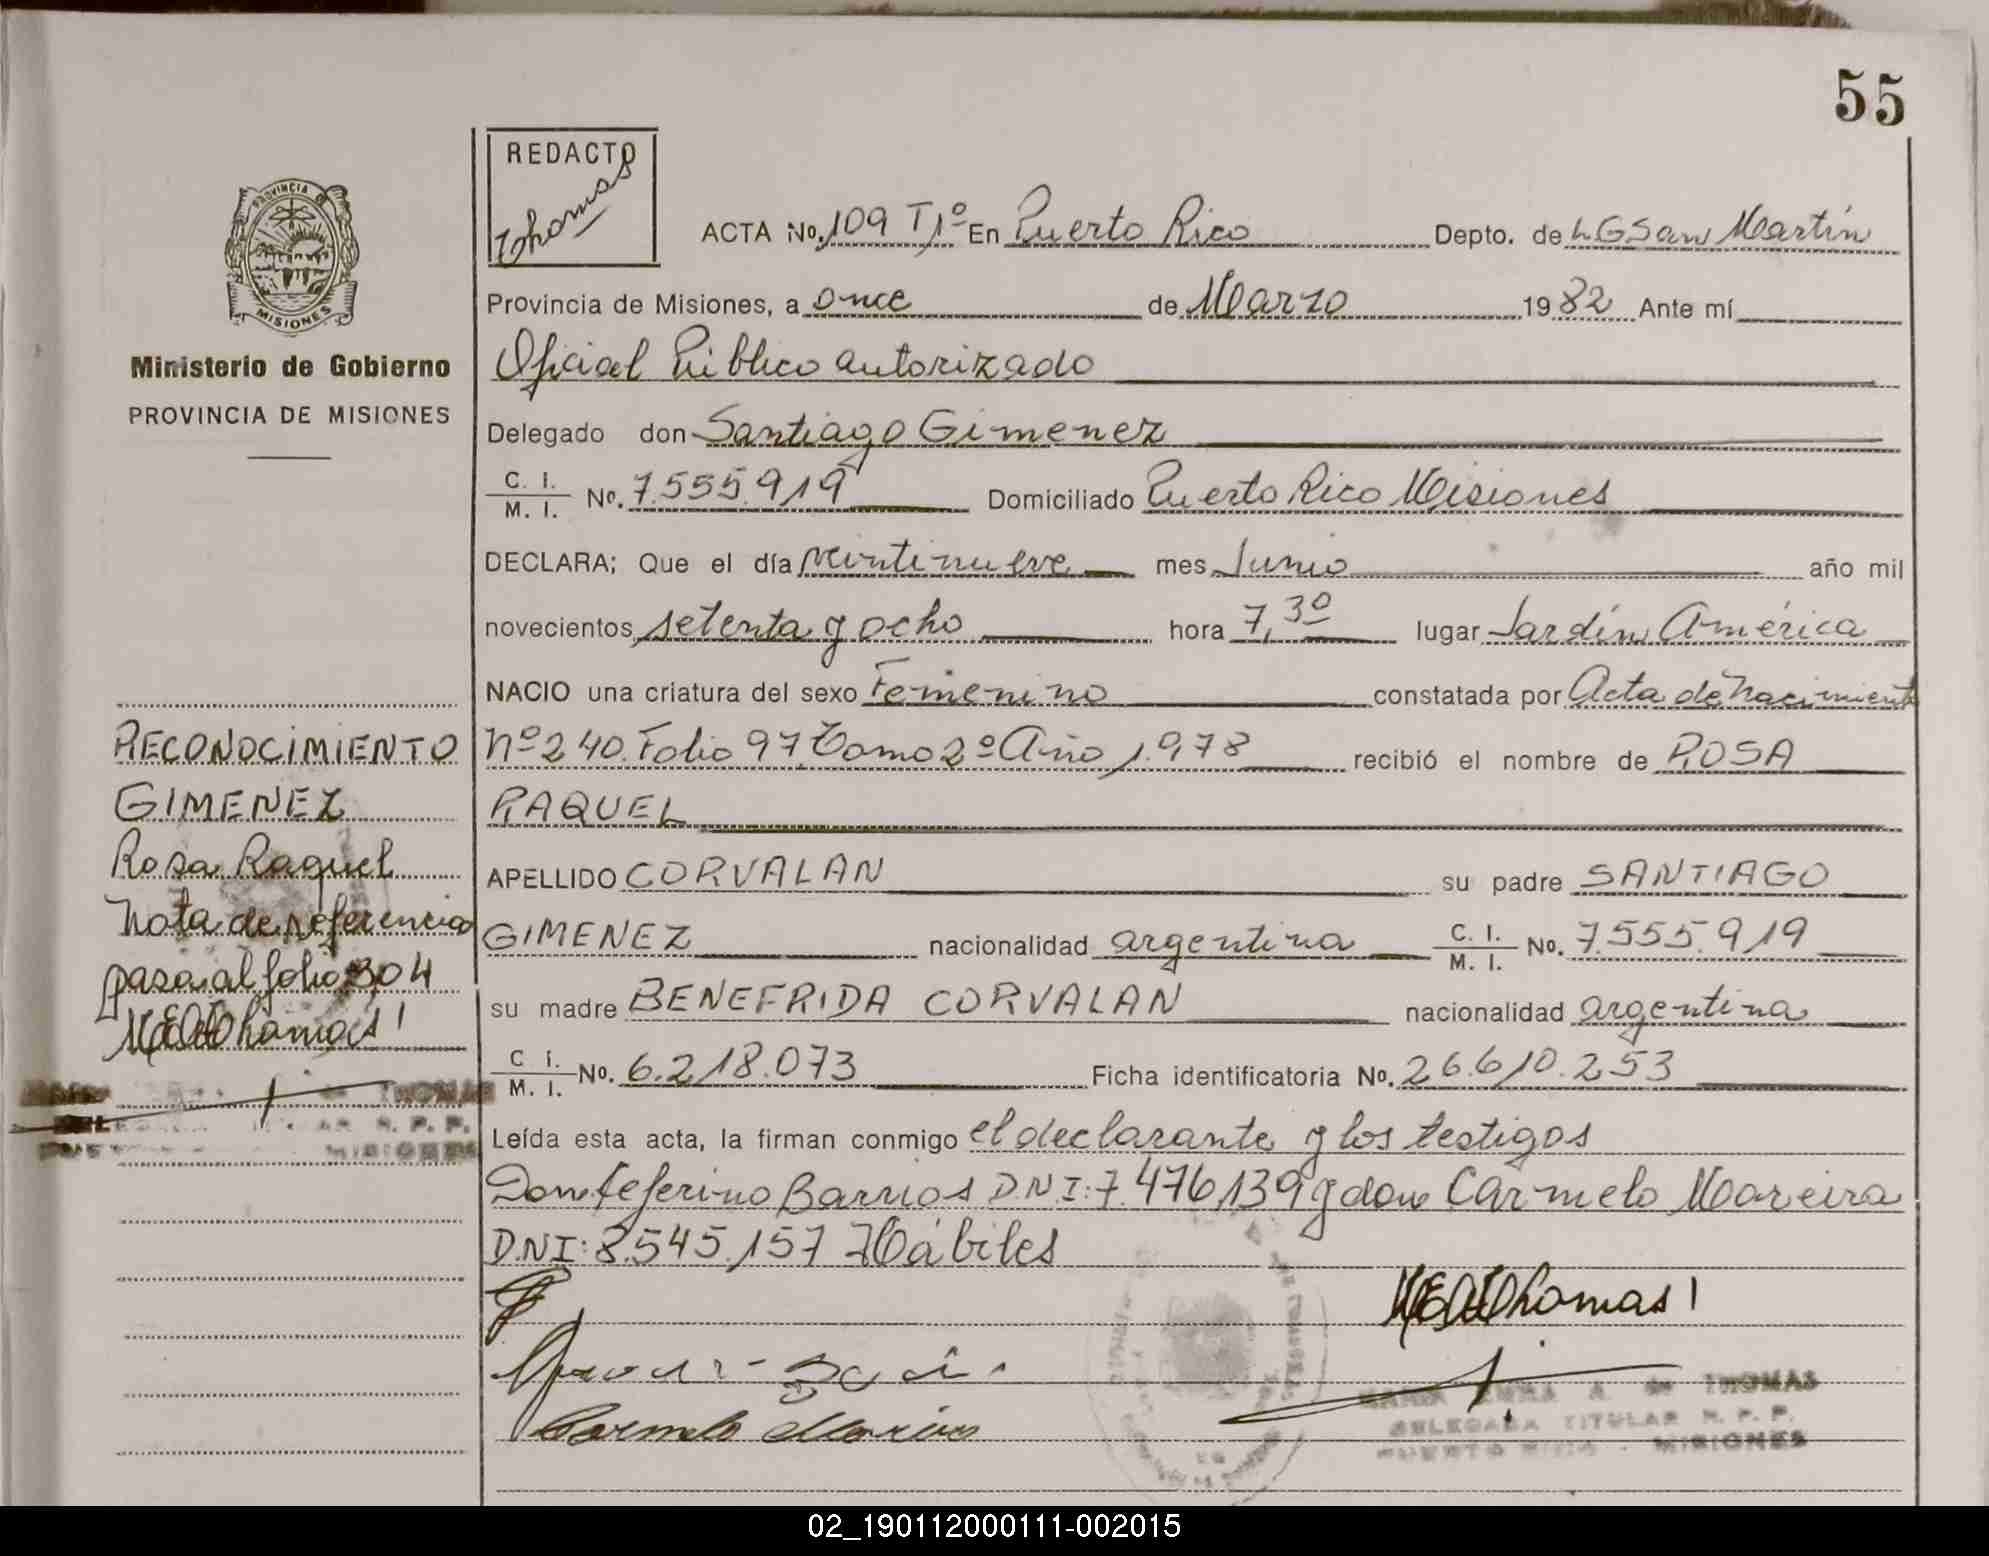 55
REDACTO
Thomas
ACTA No. 109 T1º En Puerto Rico Depto. de L G San Martín
Provincia de Misiones, a once de Marzo 1982 Ante mí
Oficial Público autorizado
Delegado don Santiago Gimenez
C. I. / M. I. No. 7.555.919 Domiciliado Puerto Rico Misiones
DECLARA; Que el día veintinueve mes Junio año mil
novecientos setenta y ocho hora 7,30 lugar Jardín América
NACIO una criatura del sexo Femenino constatada por Acta de Nacimiento
Nº 240 Folio 97 Tomo 2º Año 1.978 recibió el nombre de ROSA
RAQUEL
APELLIDO CORVALAN su padre SANTIAGO
GIMENEZ nacionalidad argentina C. I. / M. I. No. 7.555.919
su madre BENEFRIDA CORVALAN nacionalidad argentina
C I. / M. I. No. 6.218.073 Ficha identificatoria No. 26.610.253
Leída esta acta, la firman conmigo el declarante y los testigos
Don Ceferino Barrios D.N.I: 7.476,139 y don Carmelo Moreira
D.N.I: 8.545.157 Hábiles
Thomas
Carmelo
MARIA EMMA A. de THOMAS
DELEGADA TITULAR R. P. P.
PUERTO RICO - MISIONES
PROVINCIA DE
MISIONES
Ministerio de Gobierno
PROVINCIA DE MISIONES
RECONOCIMIENTO
GIMENEZ
Rosa Raquel
Nota de referencia
pasa al folio 304
Thomas
THOMAS
R. P. P.
MISIONES
02_190112000111-002015